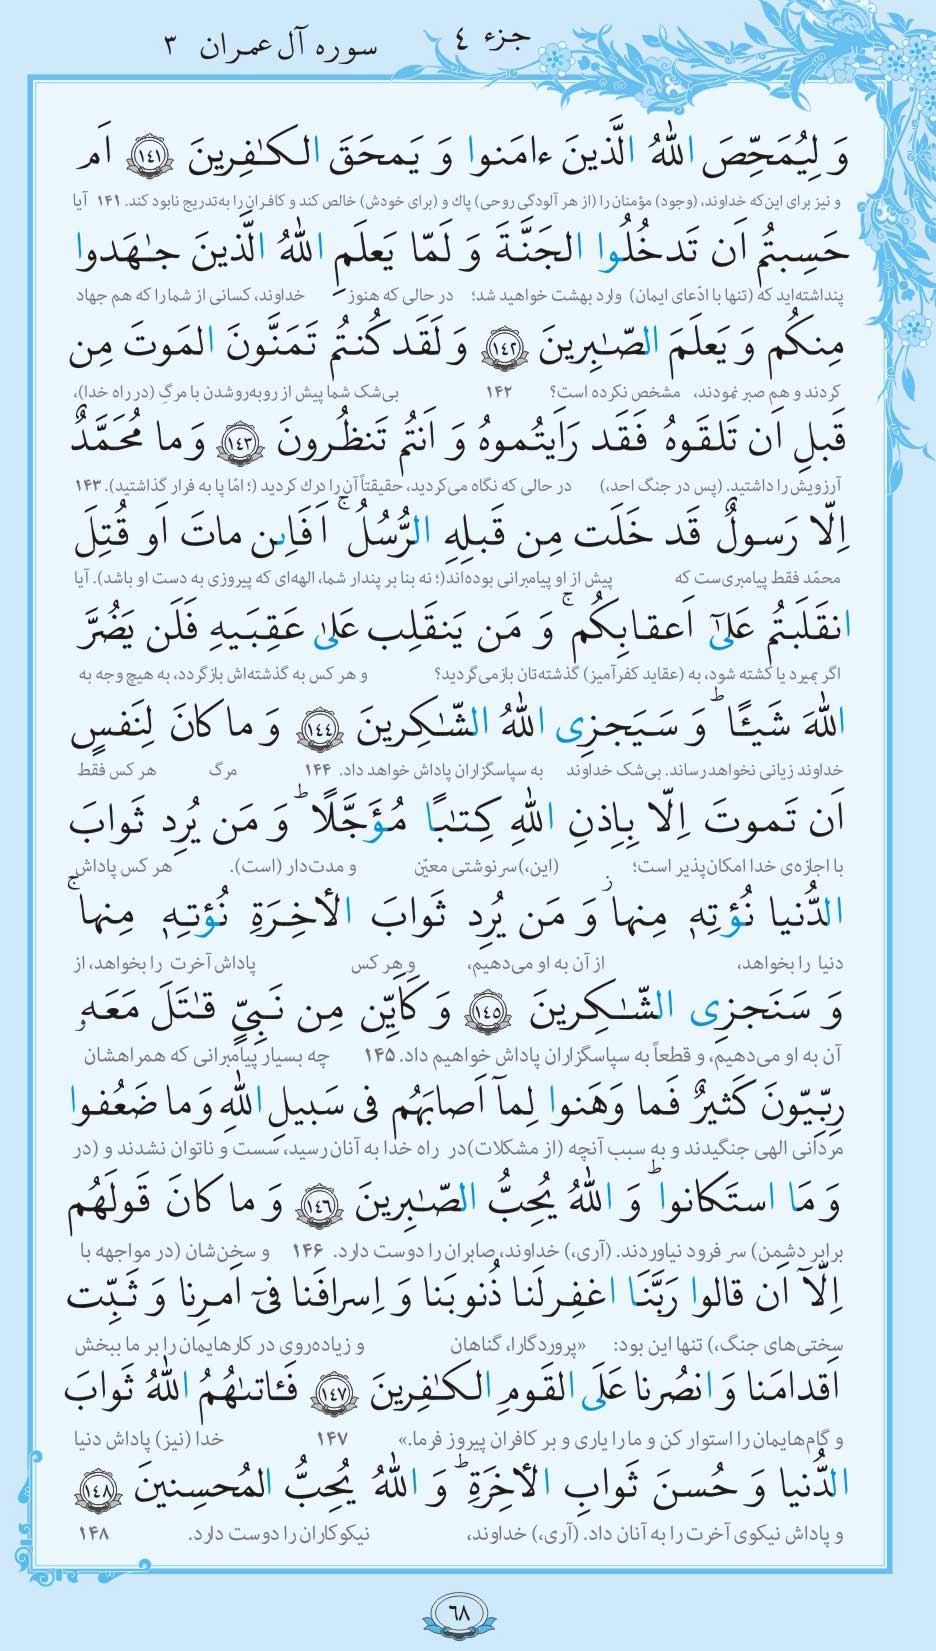 جزء ٤
سوره آل عمران ٣
وَ لِيُمَحِّصَ اللّٰهُ الَّذينَ ءامَنوا وَ يَمحَقَ الكـٰفِرينَ ﴿١٤١﴾ اَم
و نیز برای این‌که خداوند، (وجود) مؤمنان را (از هر آلودگی روحی) پاك و (برای خودش) خالص کند و کافران را به‌تدریج نابود کند. ۱۴۱ آیا
حَسِبتُم اَن تَدخُلُوا الجَنَّةَ وَ لَمّا يَعلَمِ اللّٰهُ الَّذينَ جـٰهَدوا
پنداشته‌اید که (تنها با ادّعای ایمان) وارد بهشت خواهید شد؛ در حالی که هنوز خداوند، کسانی از شما را که هم جهاد
مِنكُم وَ يَعلَمَ الصّـٰبِرينَ ﴿١٤٢﴾ وَ لَقَد كُنتُم تَمَنَّونَ المَوتَ مِن
کردند و هم صبر نمودند، مشخص نکرده است؟ ۱۴۲ بی‌شک شما پیش از روبه‌روشدن با مرگِ (در راه خدا)،
قَبلِ اَن تَلقَوهُ فَقَد رَاَيتُموهُ وَ اَنتُم تَنظُرونَ ﴿١٤٣﴾ وَ ما مُحَمَّدٌ
آرزویش را داشتید. (پس در جنگ احد،) در حالی که نگاه می‌کردید، حقیقتاً آن را درك کردید (؛ امّا پا به فرار گذاشتید). ۱۴۳
اِلّا رَسولٌ قَد خَلَت مِن قَبلِهِ الرُّسُلُ ۚ اَفَاِي۟ن ماتَ اَو قُتِلَ
محمّد فقط پیامبری‌ست که پیش از او پیامبرانی بوده‌اند(؛ نه بنا بر پندار شما، الهه‌ای که پیروزی به دست او باشد). آیا
انقَلَبتُم عَلىٰٓ اَعقابِكُم ۚ وَ مَن يَنقَلِب عَلىٰ عَقِبَيهِ فَلَن يَضُرَّ
اگر بمیرد یا کشته شود، به (عقاید کفرآمیز) گذشته‌تان بازمی‌گردید؟ و هر کس به گذشته‌اش بازگردد، به هیچ وجه به
اللّٰهَ شَيـًٔا ۗ وَ سَيَجزِى اللّٰهُ الشّـٰكِرينَ ﴿١٤٤﴾ وَ ما كانَ لِنَفسٍ
خداوند زیانی نخواهد رساند. بی‌شک خداوند به سپاسگزاران پاداش خواهد داد. ۱۴۴ مرگ هر کس فقط
اَن تَموتَ اِلّا بِاِذنِ اللّٰهِ كِتـٰبًا مُؤَجَّلًا ۗ وَ مَن يُرِد ثَوابَ
با اجازه‌ی خدا امکان‌پذیر است؛ (این،) سرنوشتی معیّن و مدت‌دار (است). هر کس پاداش
الدُّنيا نُؤتِهٖ مِنها وَ مَن يُرِد ثَوابَ الأٰخِرَةِ نُؤتِهٖ مِنها ۚ
دنیا را بخواهد، از آن به او می‌دهیم، و هر کس پاداش آخرت را بخواهد، از
وَ سَنَجزِى الشّـٰكِرينَ ﴿١٤٥﴾ وَ كَاَيِّن مِن نَبِيٍّ قـٰتَلَ مَعَهٗ
آن به او می‌دهیم، و قطعاً به سپاسگزاران پاداش خواهیم داد. ۱۴۵ چه بسیار پیامبرانی که همراهشان
رِبِّيّونَ كَثيرٌ فَما وَهَنوا لِمآ اَصابَهُم فى سَبيلِ اللّٰهِ وَ ما ضَعُفوا
مردانی الهی جنگیدند و به سبب آنچه (از مشکلات) در راه خدا به آنان رسید، سست و ناتوان نشدند و (در
وَ مَا استَكانوا ۗ وَ اللّٰهُ يُحِبُّ الصّـٰبِرينَ ﴿١٤٦﴾ وَ ما كانَ قَولَهُم
برابر دشمن) سر فرود نیاوردند. (آری،) خداوند، صابران را دوست دارد. ۱۴۶ و سخن‌شان (در مواجهه با
اِلّآ اَن قالوا رَبَّنَا اغفِر لَنا ذُنوبَنا وَ اِسرافَنا فىٓ اَمرِنا وَ ثَبِّت
سختی‌های جنگ،) تنها این بود: «پروردگارا، گناهان و زیاده‌روی در کارهایمان را بر ما ببخش
اَقدامَنا وَ انصُرنا عَلَى القَومِ الكـٰفِرينَ ﴿١٤٧﴾ فَـٔاتىٰهُمُ اللّٰهُ ثَوابَ
و گام‌هایمان را استوار کن و ما را یاری و بر کافران پیروز فرما.» ۱۴۷ خدا (نیز) پاداش دنیا
الدُّنيا وَ حُسنَ ثَوابِ الأٰخِرَةِ ۗ وَ اللّٰهُ يُحِبُّ المُحسِنينَ ﴿١٤٨﴾
و پاداش نیکوی آخرت را به آنان داد. (آری،) خداوند، نیکوکاران را دوست دارد. ۱۴۸
٦٨